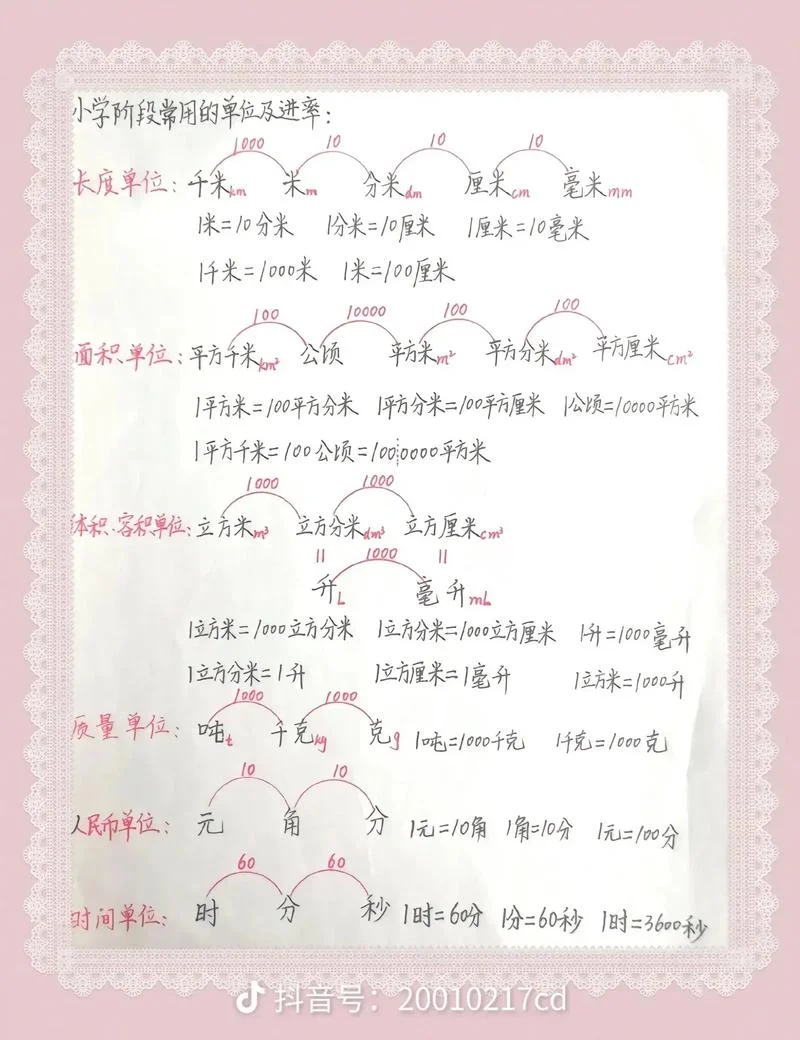 小学阶段常用的单位及进率:
1000 10 10 10
长度单位: 千米km 米m 分米dm 厘米cm 毫米mm
1米=10分米 1分米=10厘米 1厘米=10毫米
1千米=1000米 1米=100厘米
100 10000 100 100
面积单位: 平方千米km² 公顷 平方米m² 平方分米dm² 平方厘米cm²
1平方米=100平方分米 1平方分米=100平方厘米 1公顷=10000平方米
1平方千米=100公顷=1000000平方米
1000 1000
体积、容积单位: 立方米m³ 立方分米dm³ 立方厘米cm³
= 1000 =
升L 毫升mL
1立方米=1000立方分米 1立方分米=1000立方厘米 1升=1000毫升
1立方分米=1升 1立方厘米=1毫升 1立方米=1000升
1000 1000
质量单位: 吨t 千克kg 克g 1吨=1000千克 1千克=1000克
10 10
人民币单位: 元 角 分 1元=10角 1角=10分 1元=100分
60 60
时间单位: 时 分 秒 1时=60分 1分=60秒 1时=3600秒
抖音号: 20010217cd